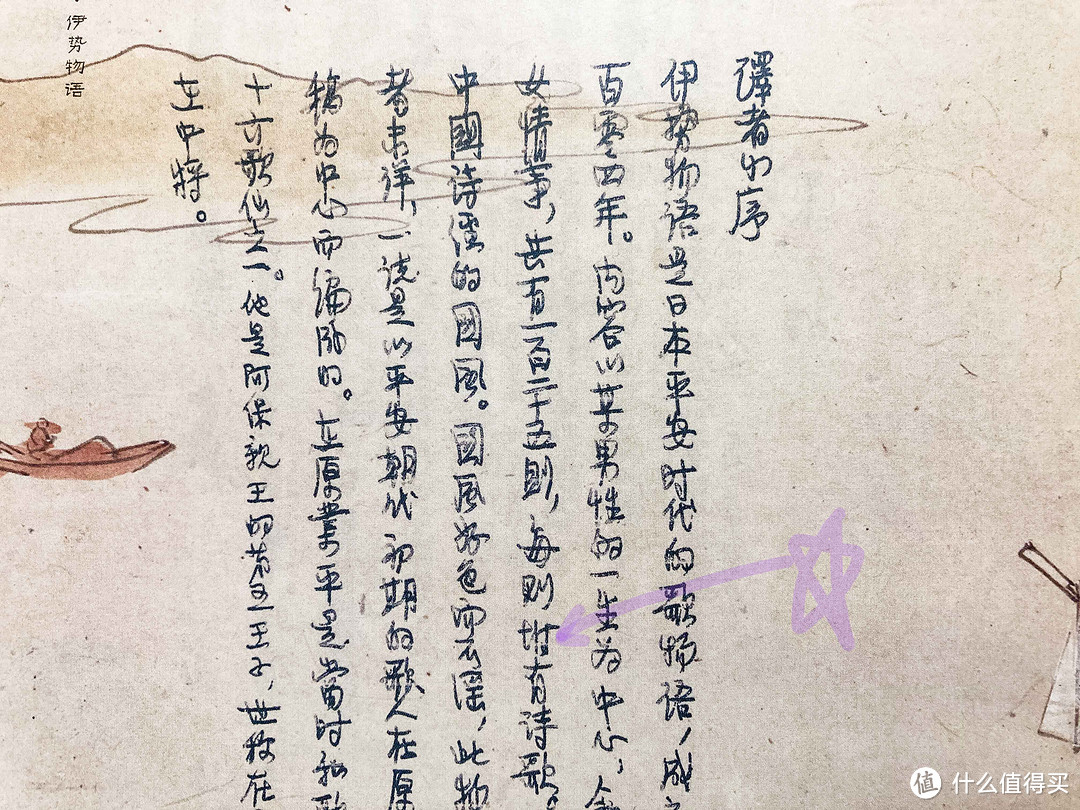 伊势物语
譯者小序
伊势物语是日本平安时代的歌物语，成
百零四年。内容以某男性的一生为中心，
女情事，共有一百二十五则，每则坿有诗歌。
中國诗經的國风。國风好色而不淫，此物
者未详，一说是以平安朝代初期的歌人在原
稿为中心而编成的。在原業平是當时和歌
十六歌仙之一。他是阿保親王的第五王子，世称在
在中将。
值 什么值得买